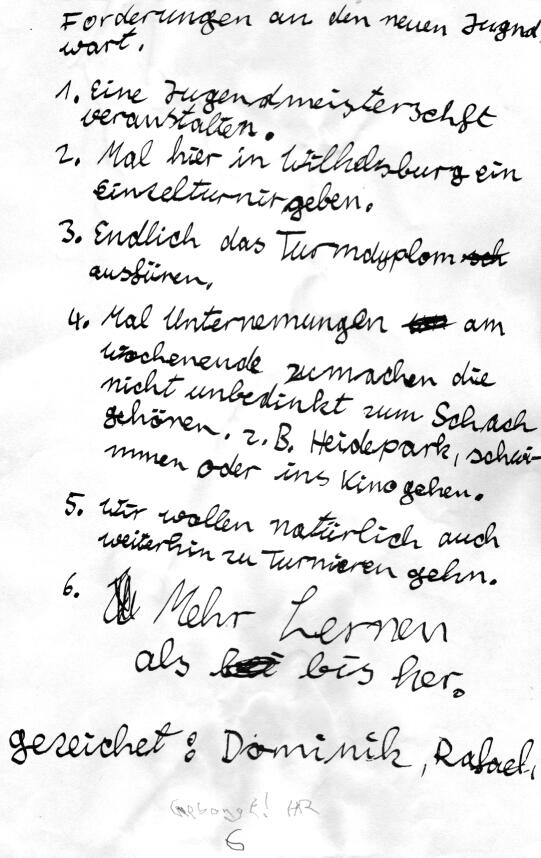 Forderungen an den neuen Jugend,
wart.
1. Eine Jugendmeisterschft
veranstalten.
2. Mal hier in Wilhelsburg ein
Einzelturnir geben.
3. Endlich das Turmdyplom
ausfüren.
4. Mal Unternemungen am
Wochenende zumachen die
nicht unbedinkt zum Schach
gehören. z.B. Heidepark, schwi-
mmen oder ins Kino gehen.
5. Wir wollen natürlich auch
weiterhin zu Turnieren gehn.
6. Mehr Lernen
als bis her.
gezeichet: Dominik, Rafael,
HR
6